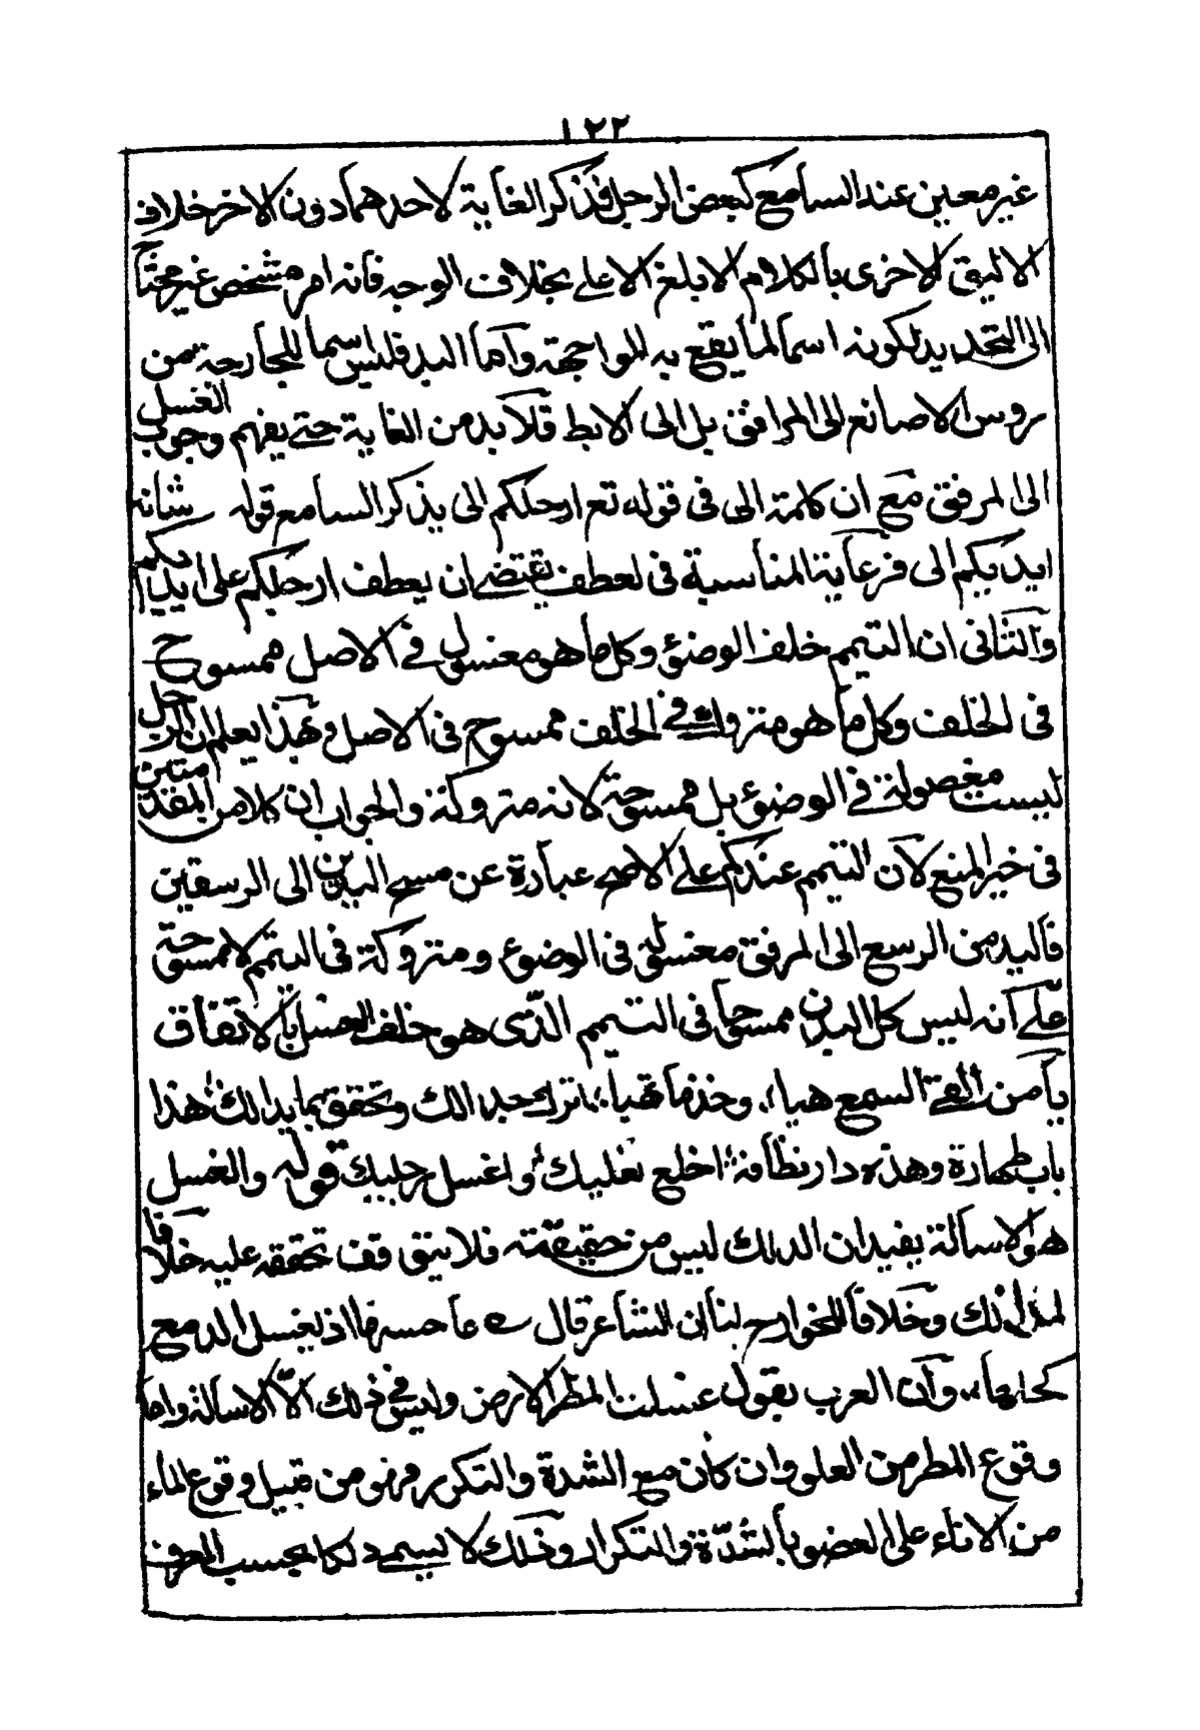 ١٢٢
غير معين عند السامع كبعض الرجل فذكر الغاية لاحدهما دون الاخر خلاف
الاليق لاحرى بالكلام الابلغ الاعلى بخلاف الوجه فانه امر مشخص غير محتاج
الى التحديد لكونه اسما لما يقع به المواجهة وآما اليد فليس اسما للجارحة من
روس الاصابع الى المرافق بل الى الابط فلآبد من الغاية حتى يفهم وجوب الغسل
الى المرفق مع ان كلمة الى فى قوله تع ارجلكم الى يذكر السامع قوله شانه
ايديكم الى فرعاية المناسبة فى لعطف يقتضى ان يعطف ارجلكم على ايديكم
وآلثانى ان التيمم خلف الوضئ وكل ما هو مغسول فى الاصل ممسوح
فى الخلف وكل ما هو متروك فى الخلف ممسوح فى الاصل وبهذا يعلم ان الرجل
ليست مغصولة فى الوضئ بل ممسوحة لانه متروكة والجواب ان كلا من المقدمتين
فى خير المنع لآن التيمم عندكم على الاصح عبارة عن مسح اليدين الى الرسغين
فاليد من الرسع الى المرفق مغسولة فى الوضوع ومتروكة فى التيمم لا ممسوحة
علىّ آنه ليس كل اليدين ممسوحا فى التيمم الذى هو خلف الغسل بالاتفاق
يآ من القى السمع هيا، وخذ ما تهيا، اترك جدالك وتحقق بما بدالك هذا
باب طهارة وهذه دار نظافة اخلع نعليك واغسل رجليك قوله والغسل
هو الاسالة يفيد ان الدلك ليس من حقيقته فلا يتوقف تحققه عليه خلافا
لمالك وخلافا للخوارج لنا ان الشاعر قال ے عا حسنها اذ يغسل الدمع
كحلها، وآن العرب يقول غسلت المطر الارض وليس فى ذلك الاّ الاسالة واما
وقوع المطر من العلو وان كان مع الشدة والتكرر فهو من قبيل وقوع الماء
من الاناء على العضو بالشدّة والتكرار وذلك لا يسمى دلكا بحسب العرف